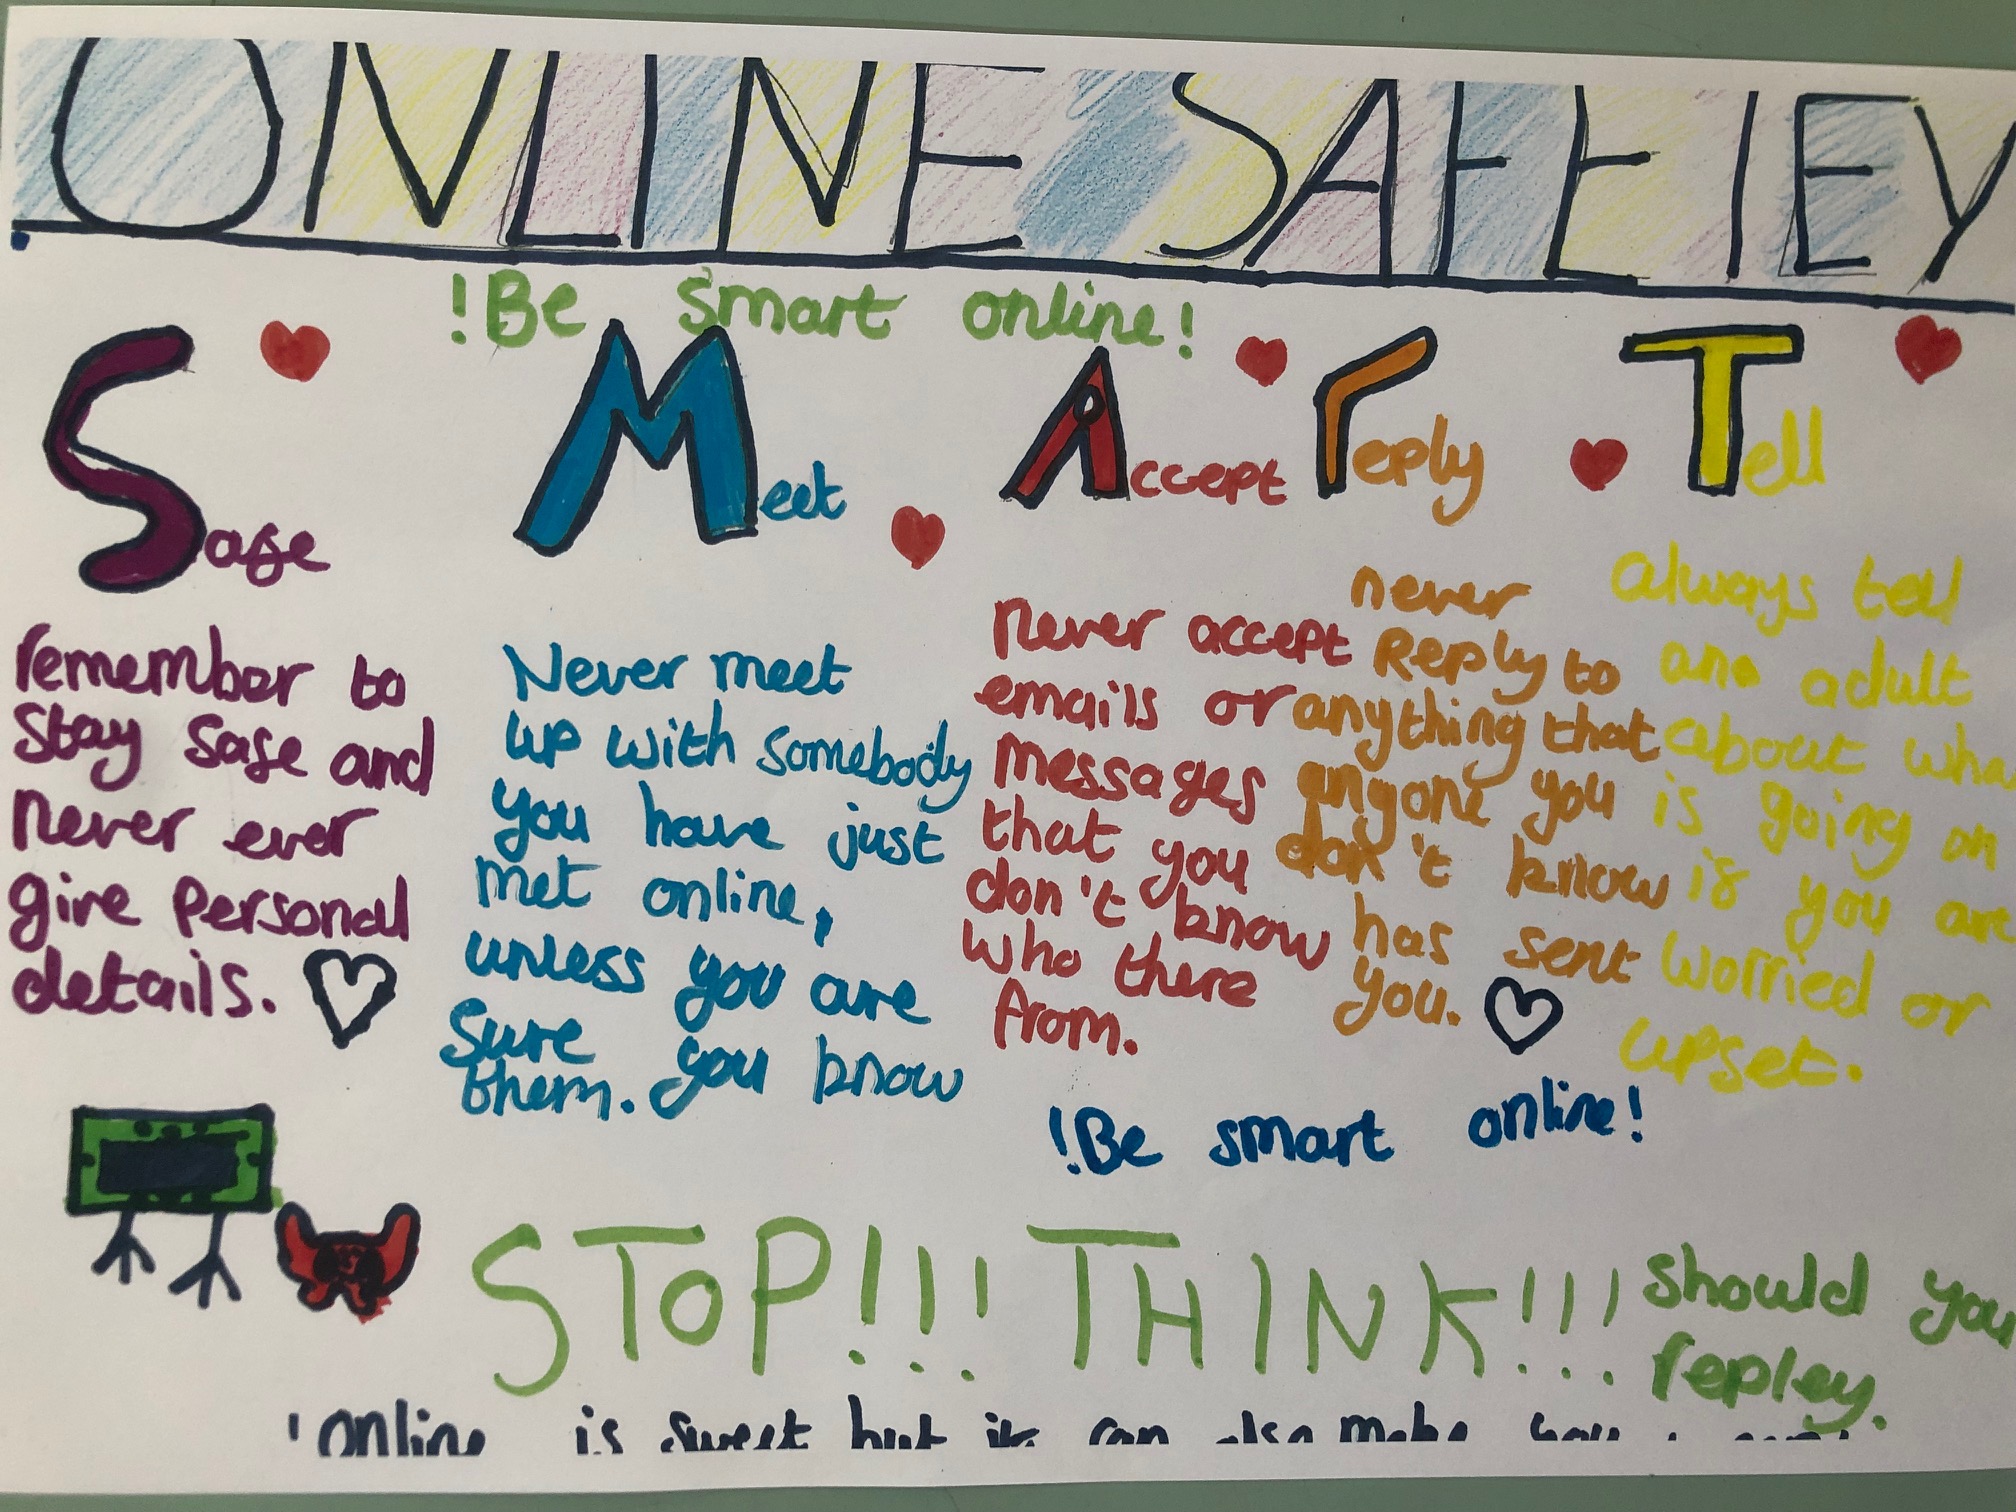 ONLINE SAFETEY
!Be smart online!
Safe
Meet
Accept
reply
Tell
remember to
stay safe and
never ever
give personal
details.
Never meet
up with somebody
you have just
met online,
unless you are
sure you know
them.
never accept
emails or
messages
that you
don't know
who there
from.
never
Reply to
anything that
anyone you
don't know
has sent
you.
always tell
an adult
about wha
is going on
if you are
worried or
upset.
!Be smart online!
STOP!!! THINK!!! should you
repley.
'online is sweet but it can also make you